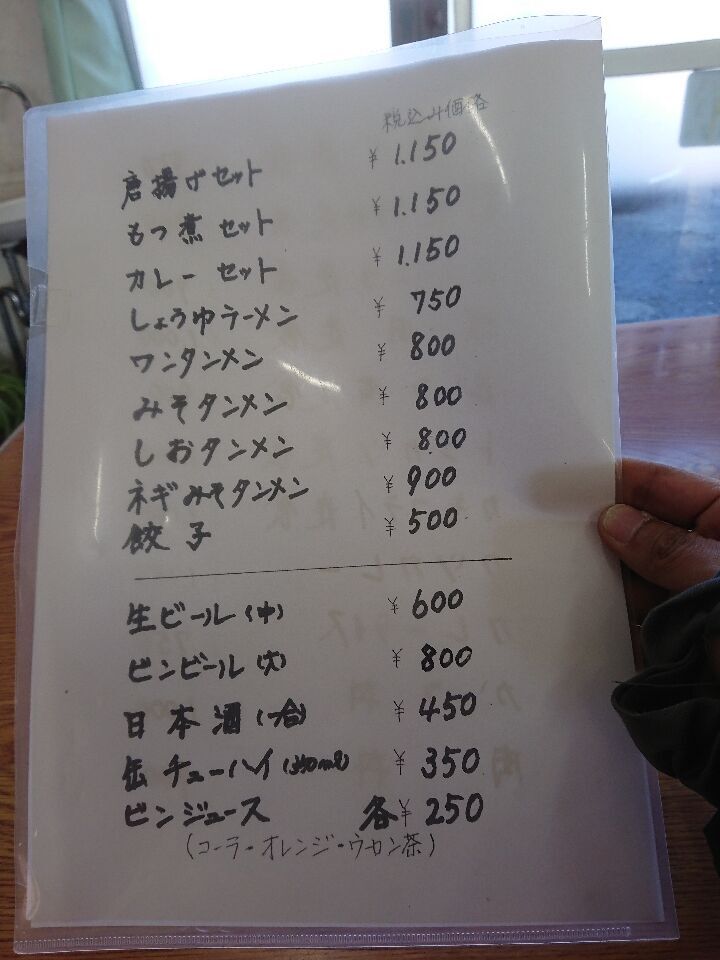 税込み価格
唐揚げセット ¥1.150
もつ煮セット ¥1.150
カレーセット ¥1.150
しょうゆラーメン ¥750
ワンタンメン ¥800
みそタンメン ¥800
しおタンメン ¥800
ネギみそタンメン ¥900
餃子 ¥500
生ビール(中) ¥600
ビンビール(大) ¥800
日本酒(一合) ¥450
缶チューハイ(350ml) ¥350
ビンジュース 各¥250
(コーラ・オレンジ・ウーロン茶)